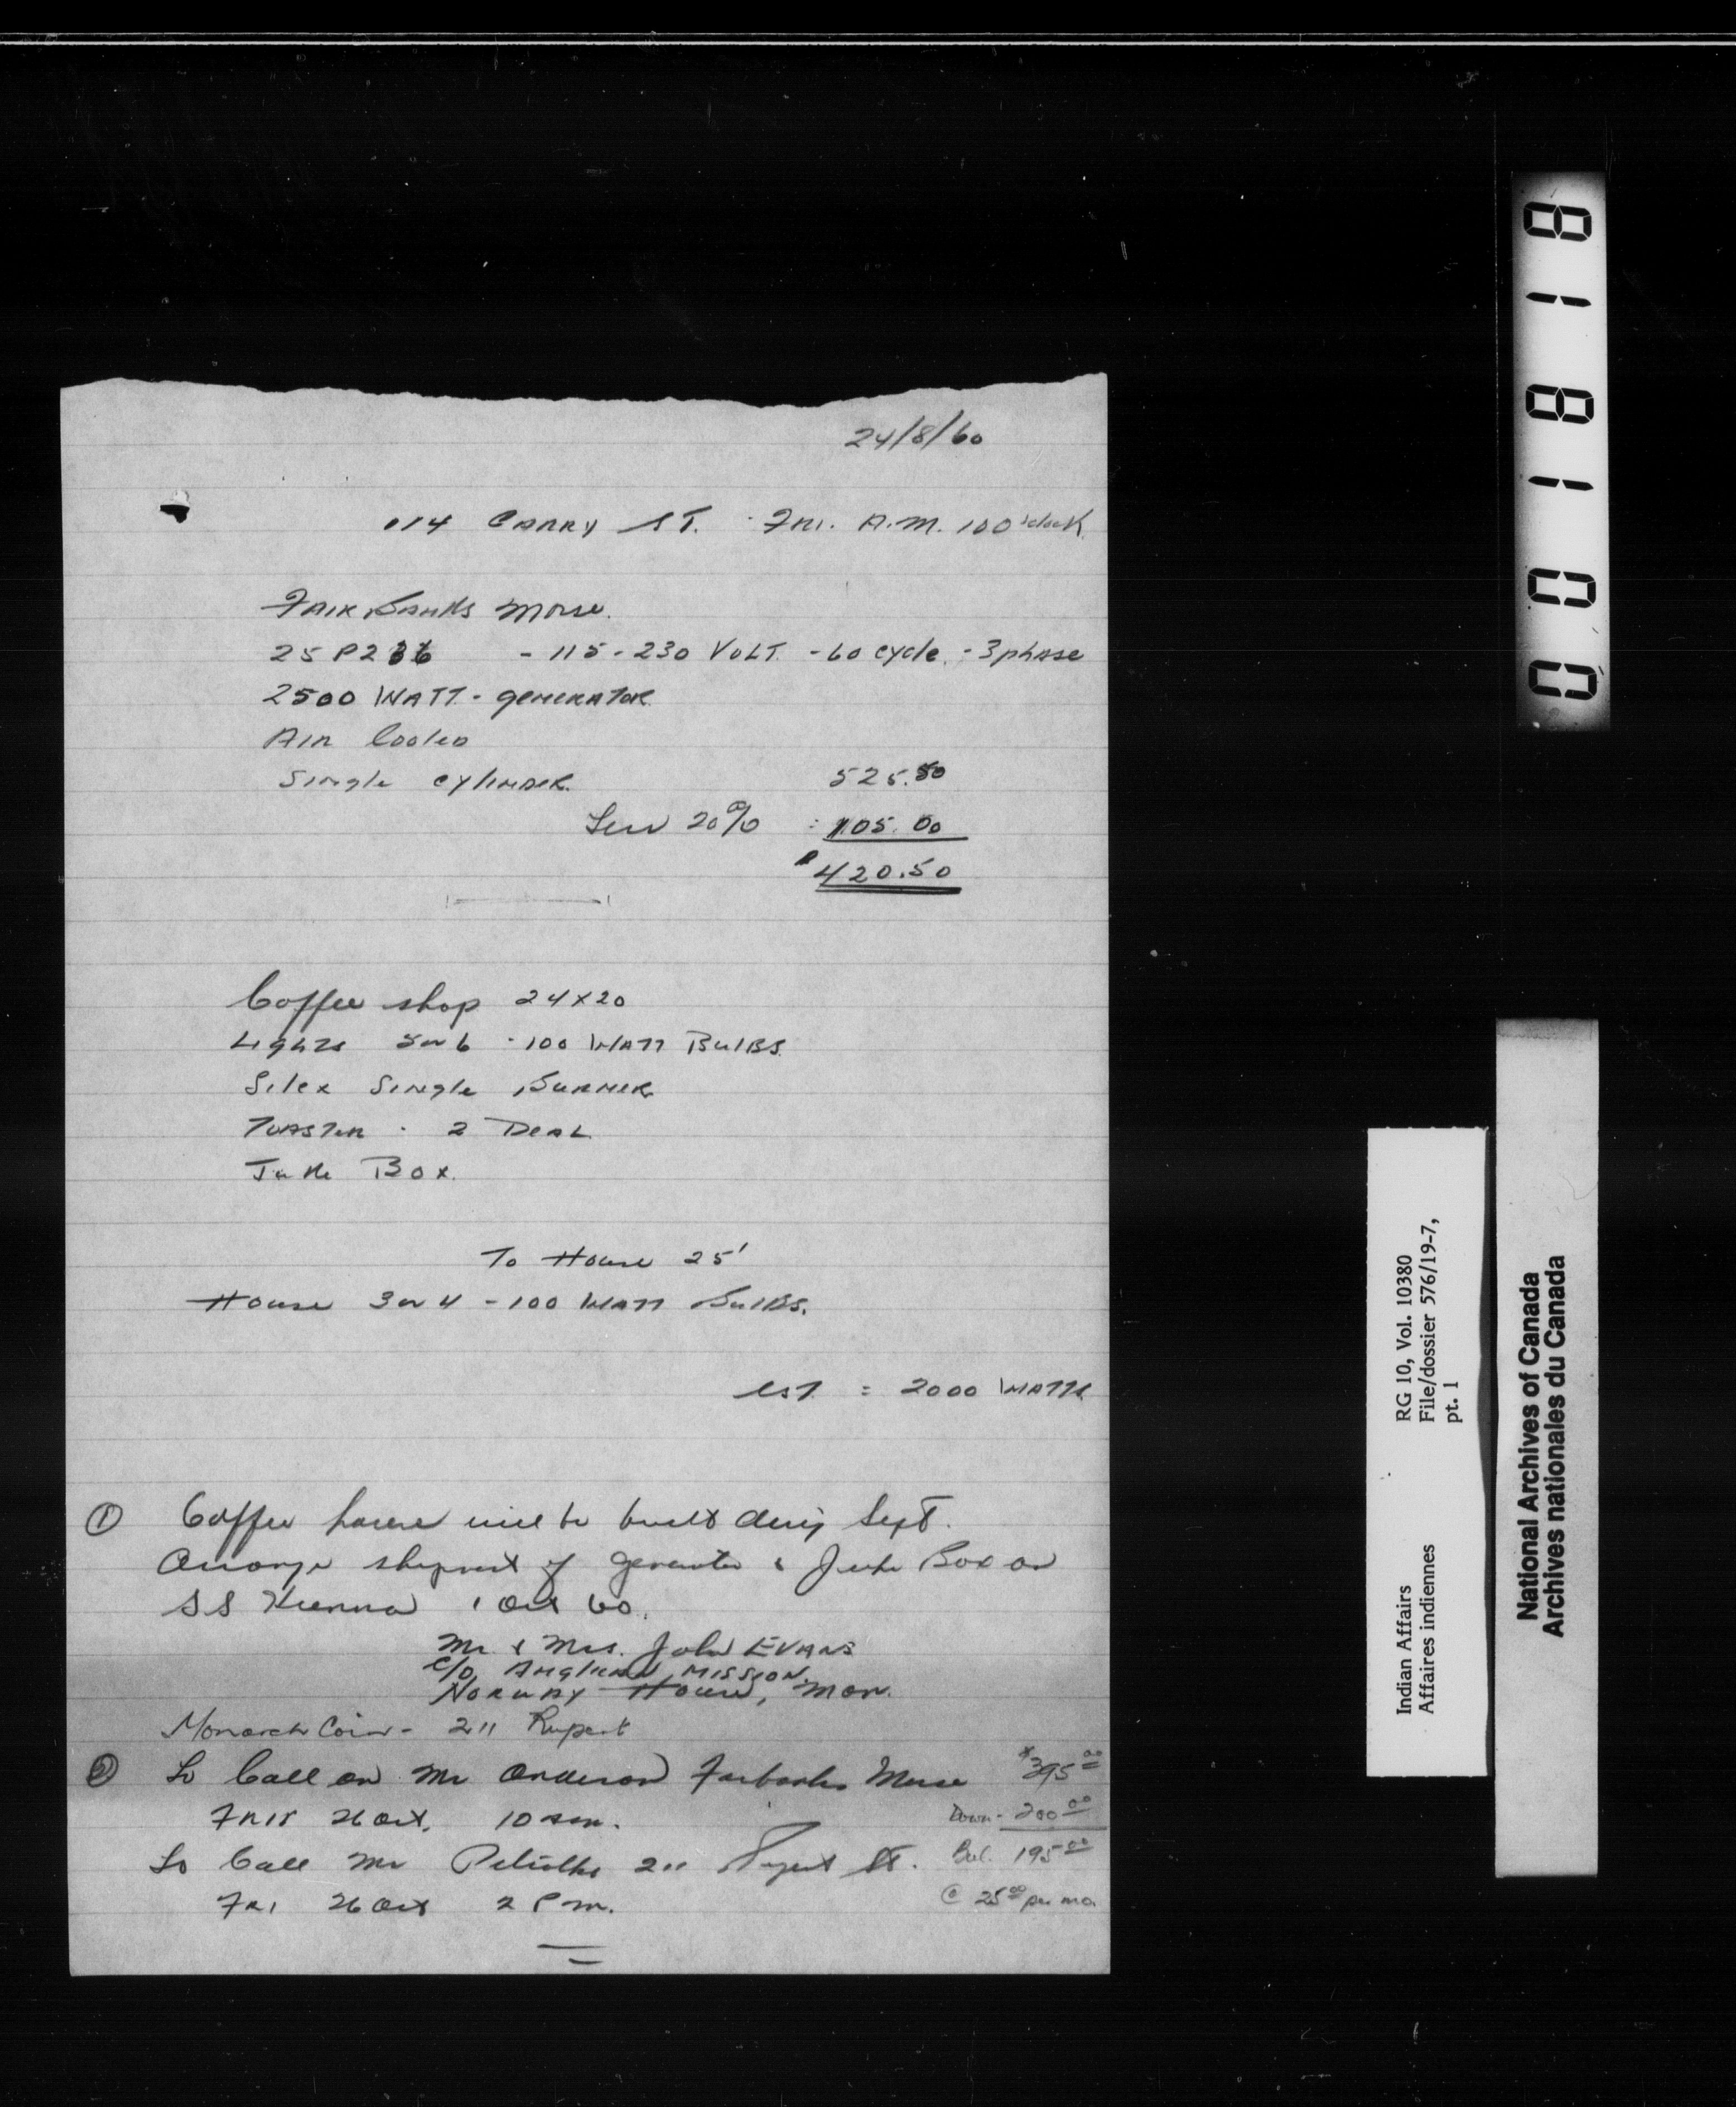 24/8/60
114 GARRY ST. FRI. A.M. 10 O'clock
Fairbanks Morse.
25 P236 - 115-230 VOLT - 60 cycle - 3 phase
2500 WATT - generator
Air Cooled
Single cylinder 525.50
Less 20% : 105.00
$420.50
Coffee shop 24 x 20
Lights 5 or 6 - 100 WATT BulBS.
Silex Single Burner
Toaster - 2 Deal
Juke Box.
To House 25'
House 3 or 4 - 100 WATT BulBS.
est. = 2000 WATTS
① Coffee house will be built during Sept.
Arrange shipment of generator & Juke Box on
SS Keenora 1 Oct 60.
Mr. & Mrs. John EVANS
c/o Anglican MISSION.
Norway House, Man.
Monarch Coin - 211 Rupert
② To Call on Mr Anderson Fairbanks Morse $395.00
26 Oct. 10 am. Down - 200.00
To Call Mr 211 Rupert St. Bal. 195.00
Fri 26 Oct 2 P.m. @ 25.00 per mo.
001818
Indian Affairs RG 10, Vol. 10380
Affaires indiennes File/dossier 576/19-7,
pt. 1
National Archives of Canada
Archives nationales du Canada